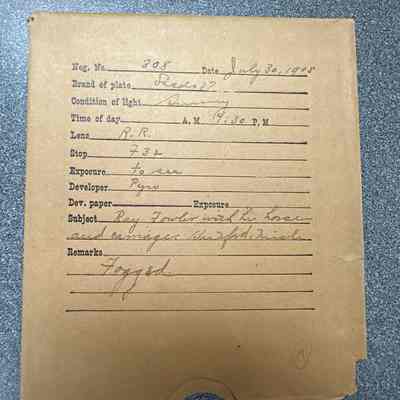 Neg. No. 308 Date July 30, 1908
Brand of plate Seeds 27
Condition of light Sunny
Time of day A, M P, M
Lens R. R.
Stop F 32
Exposure sec
Developer Pyro
Dev. paper Exposure
Subject Ray Fowler with his horse
and carriage.
Remarks
Fogged